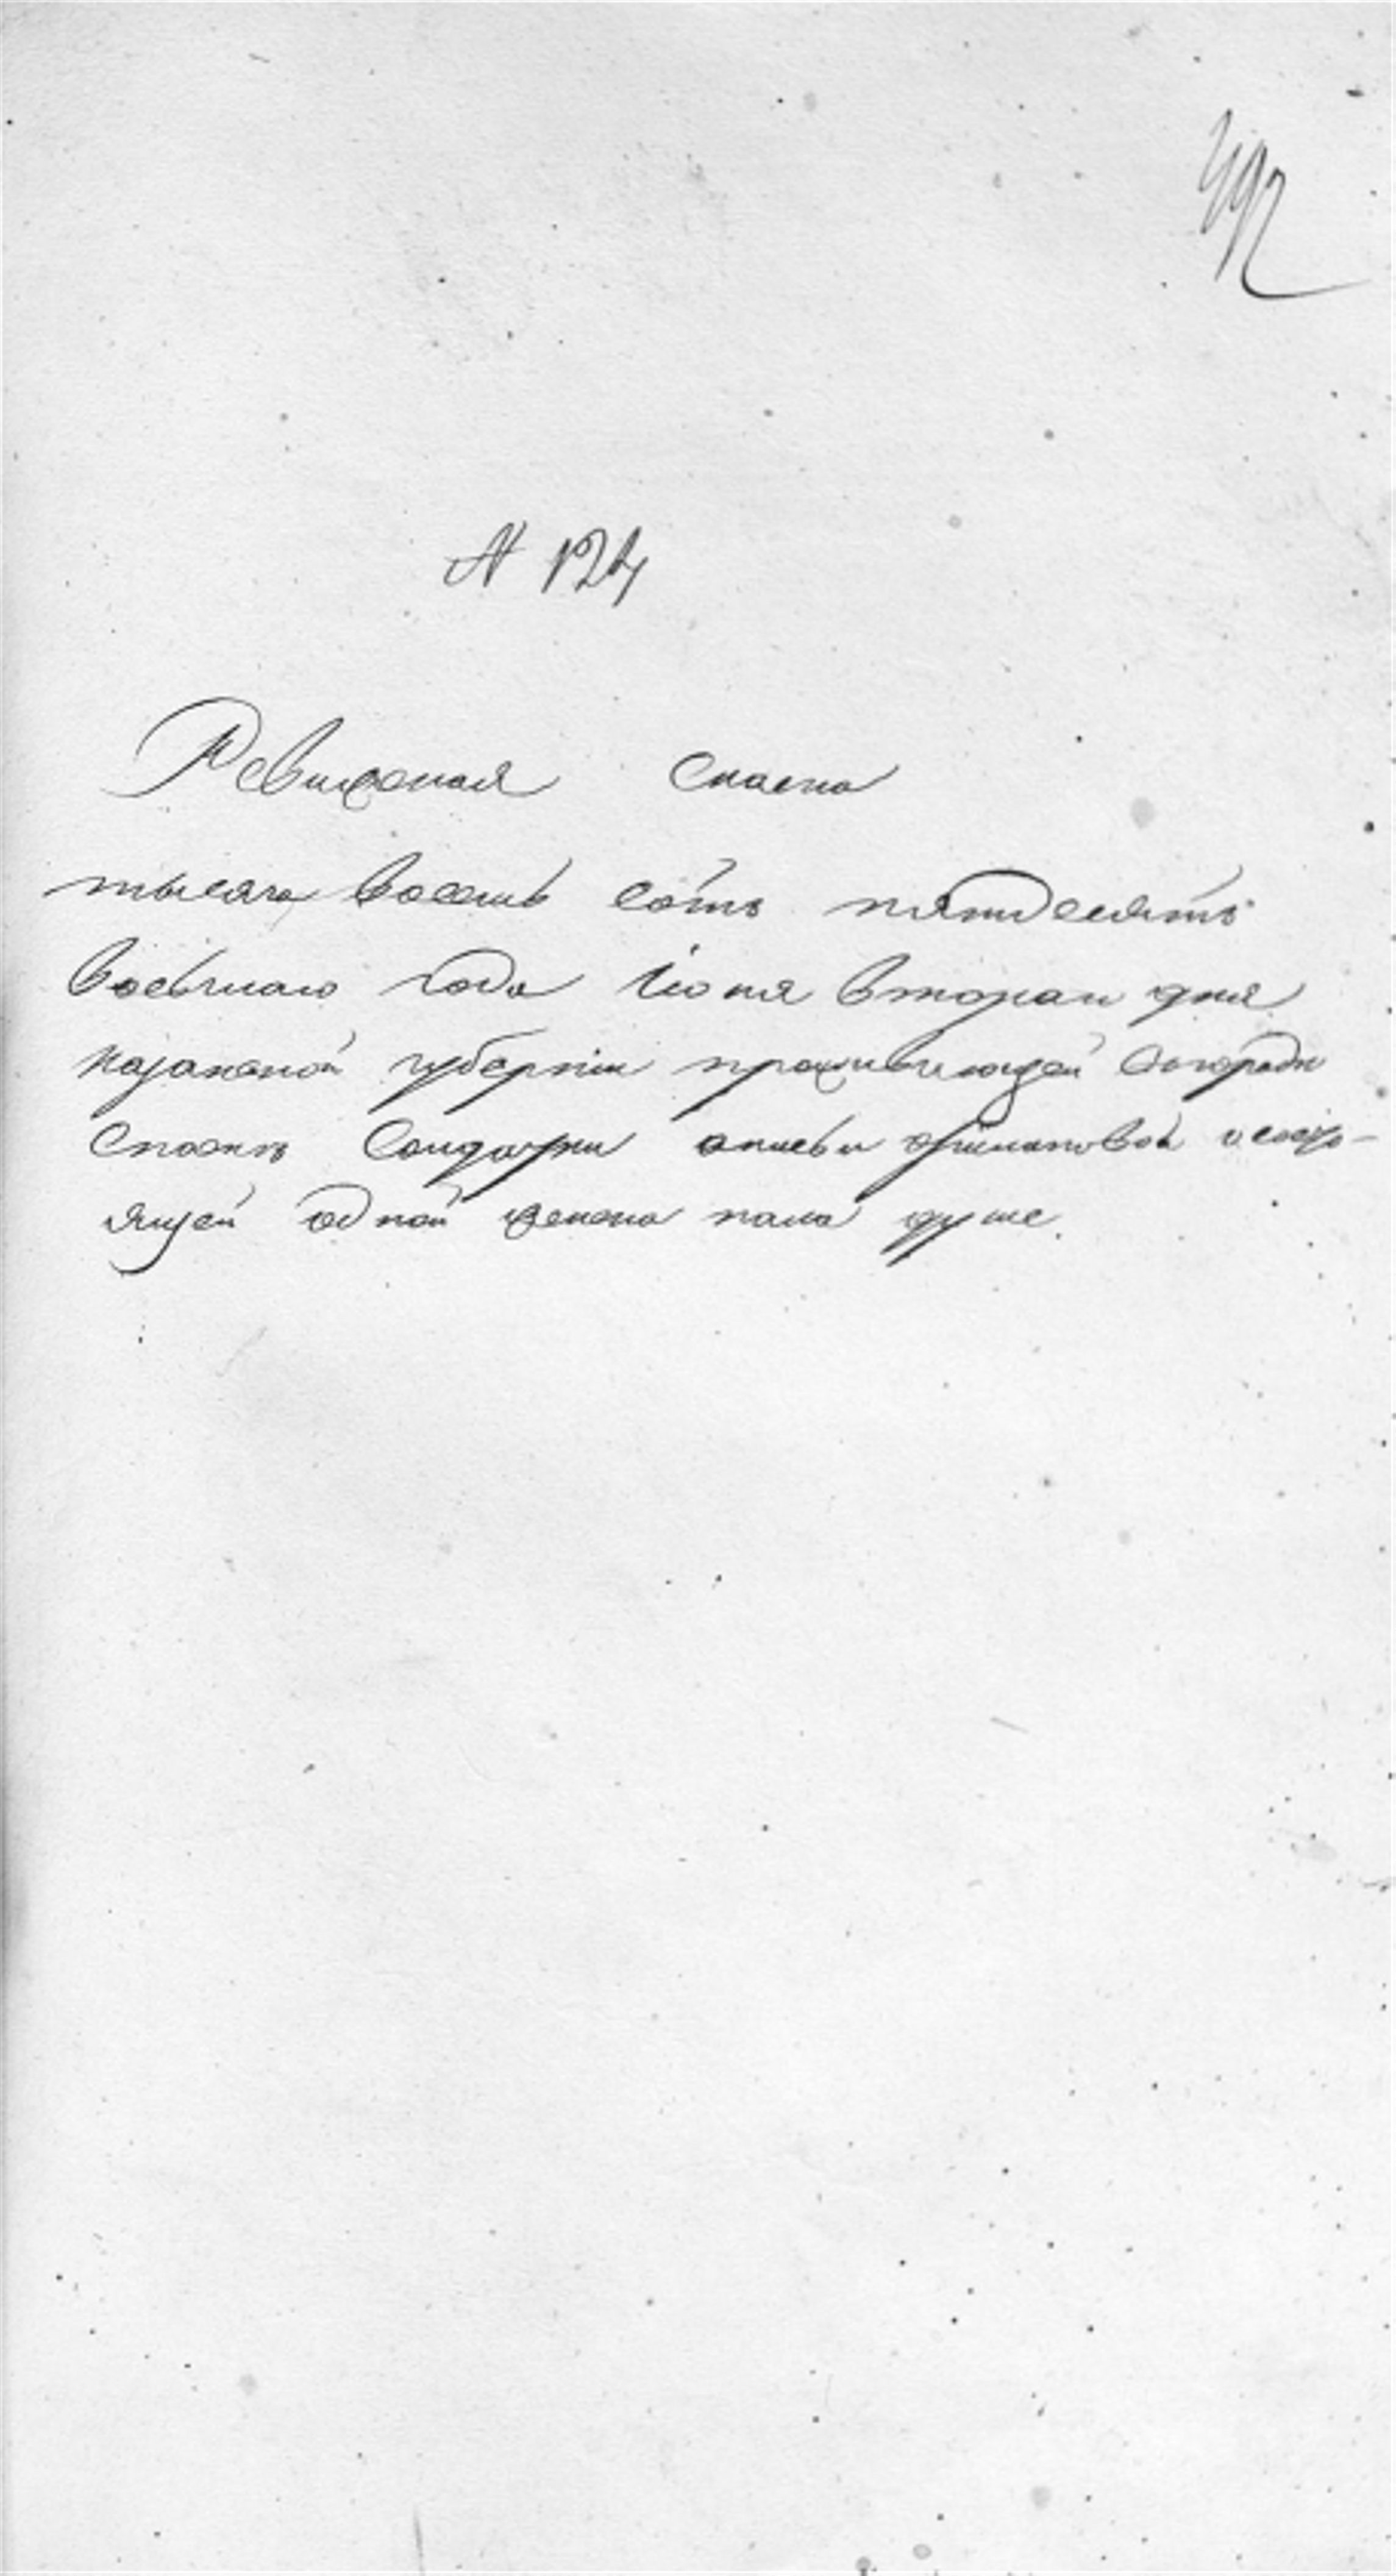 492
N 124
Ревизская сказка
тысяча восемь сотъ пятдесятъ
восьмаго года Июня втораго дня
казанской губернии проживающей вгороди
спаскъ Солдатки
ящей одной женска пала душе.